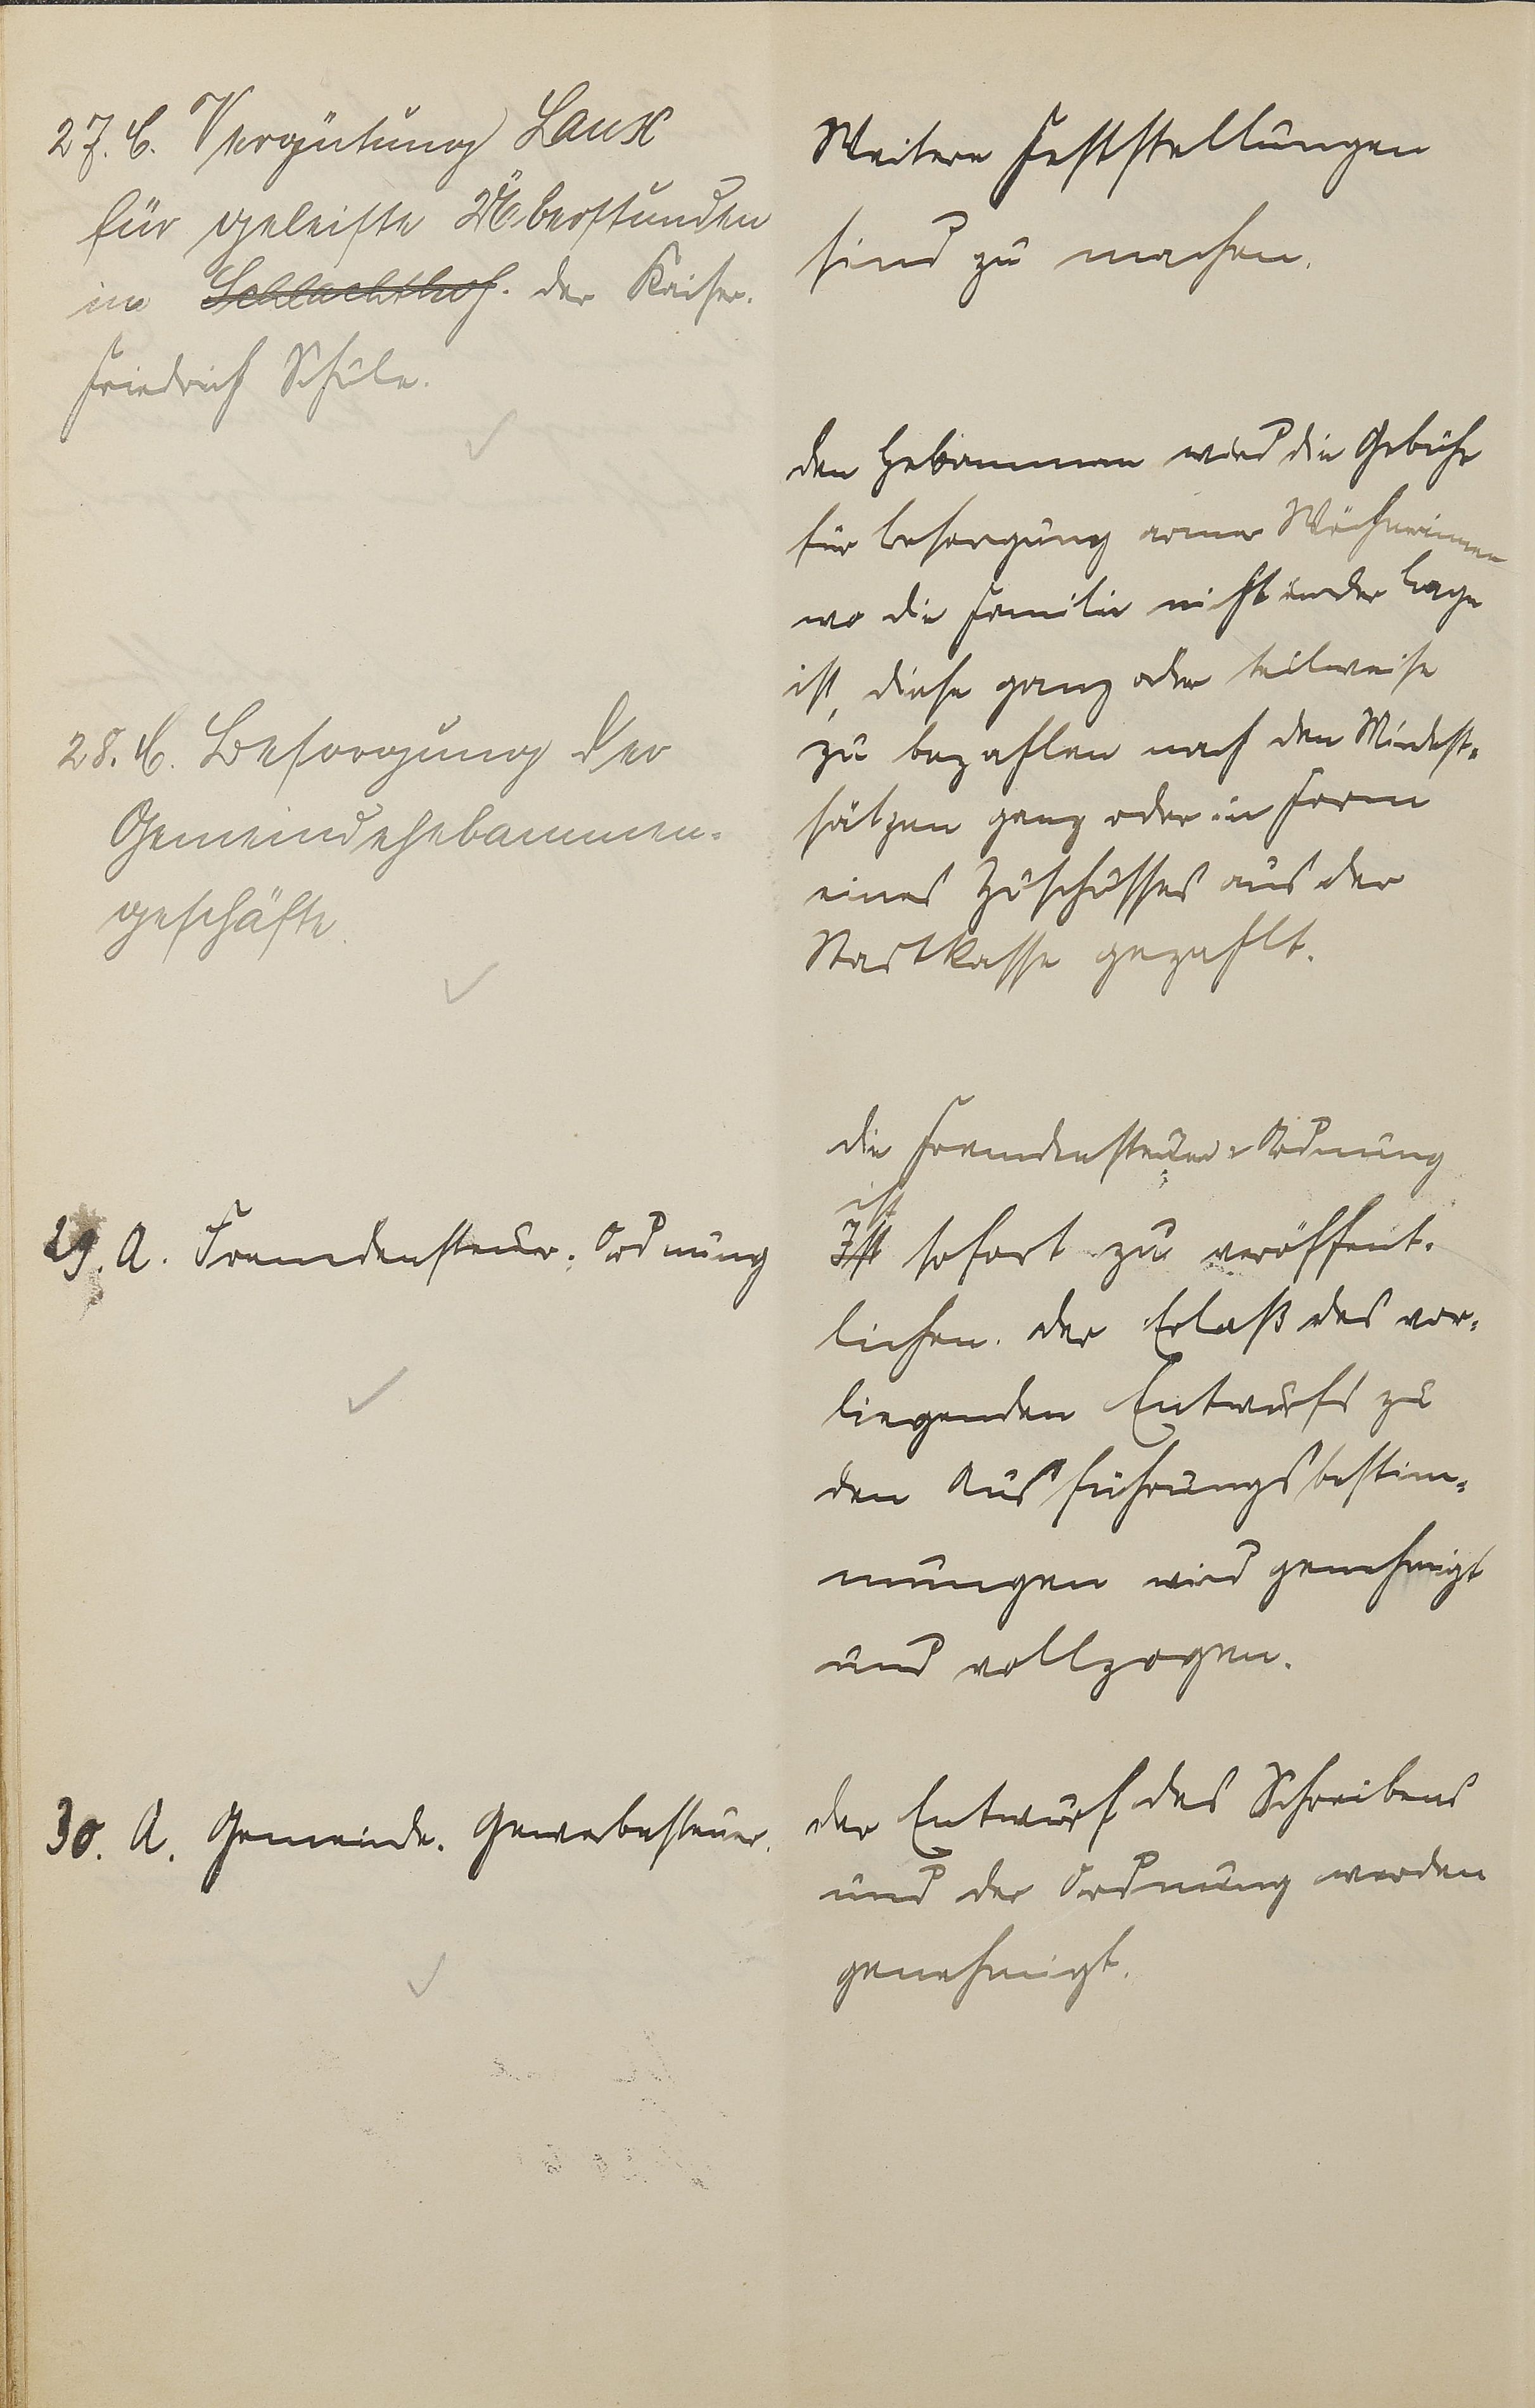 27. C. Vergütung Laux
für geleiste Überstunden
im Schlachthof. der Kaiser-
Friedrich Schule.
Weitere Feststellungen
sind zu machen.
28. C. Besorgung der
Gemeindehebammen-
geschäfte.
den Hebammen wird die Gebühr
für Besorgung armer Wöchnerinnen
wo die Familie nicht in der Lage
ist, diese ganz oder teilweise
zu bezahlen nach den Mindest-
sätzen ganz oder in Form
eines Zuschusses aus der
Stastkasse gezahlt.
29. A. Fremdensteuer-Ordnung
die Fremdensteuer-Ordnung
ist
Ist sofort zu veröffent-
lichen. der Erlaß des vor-
liegenden Entwurfs zu
den Ausführungsbestim-
mungen wird genehmigt
und vollzogen.
30. A. Gemeinde-Gewerbesteuer.
der Entwurf des Schreibens
und der Ordnung werden
genehmigt.